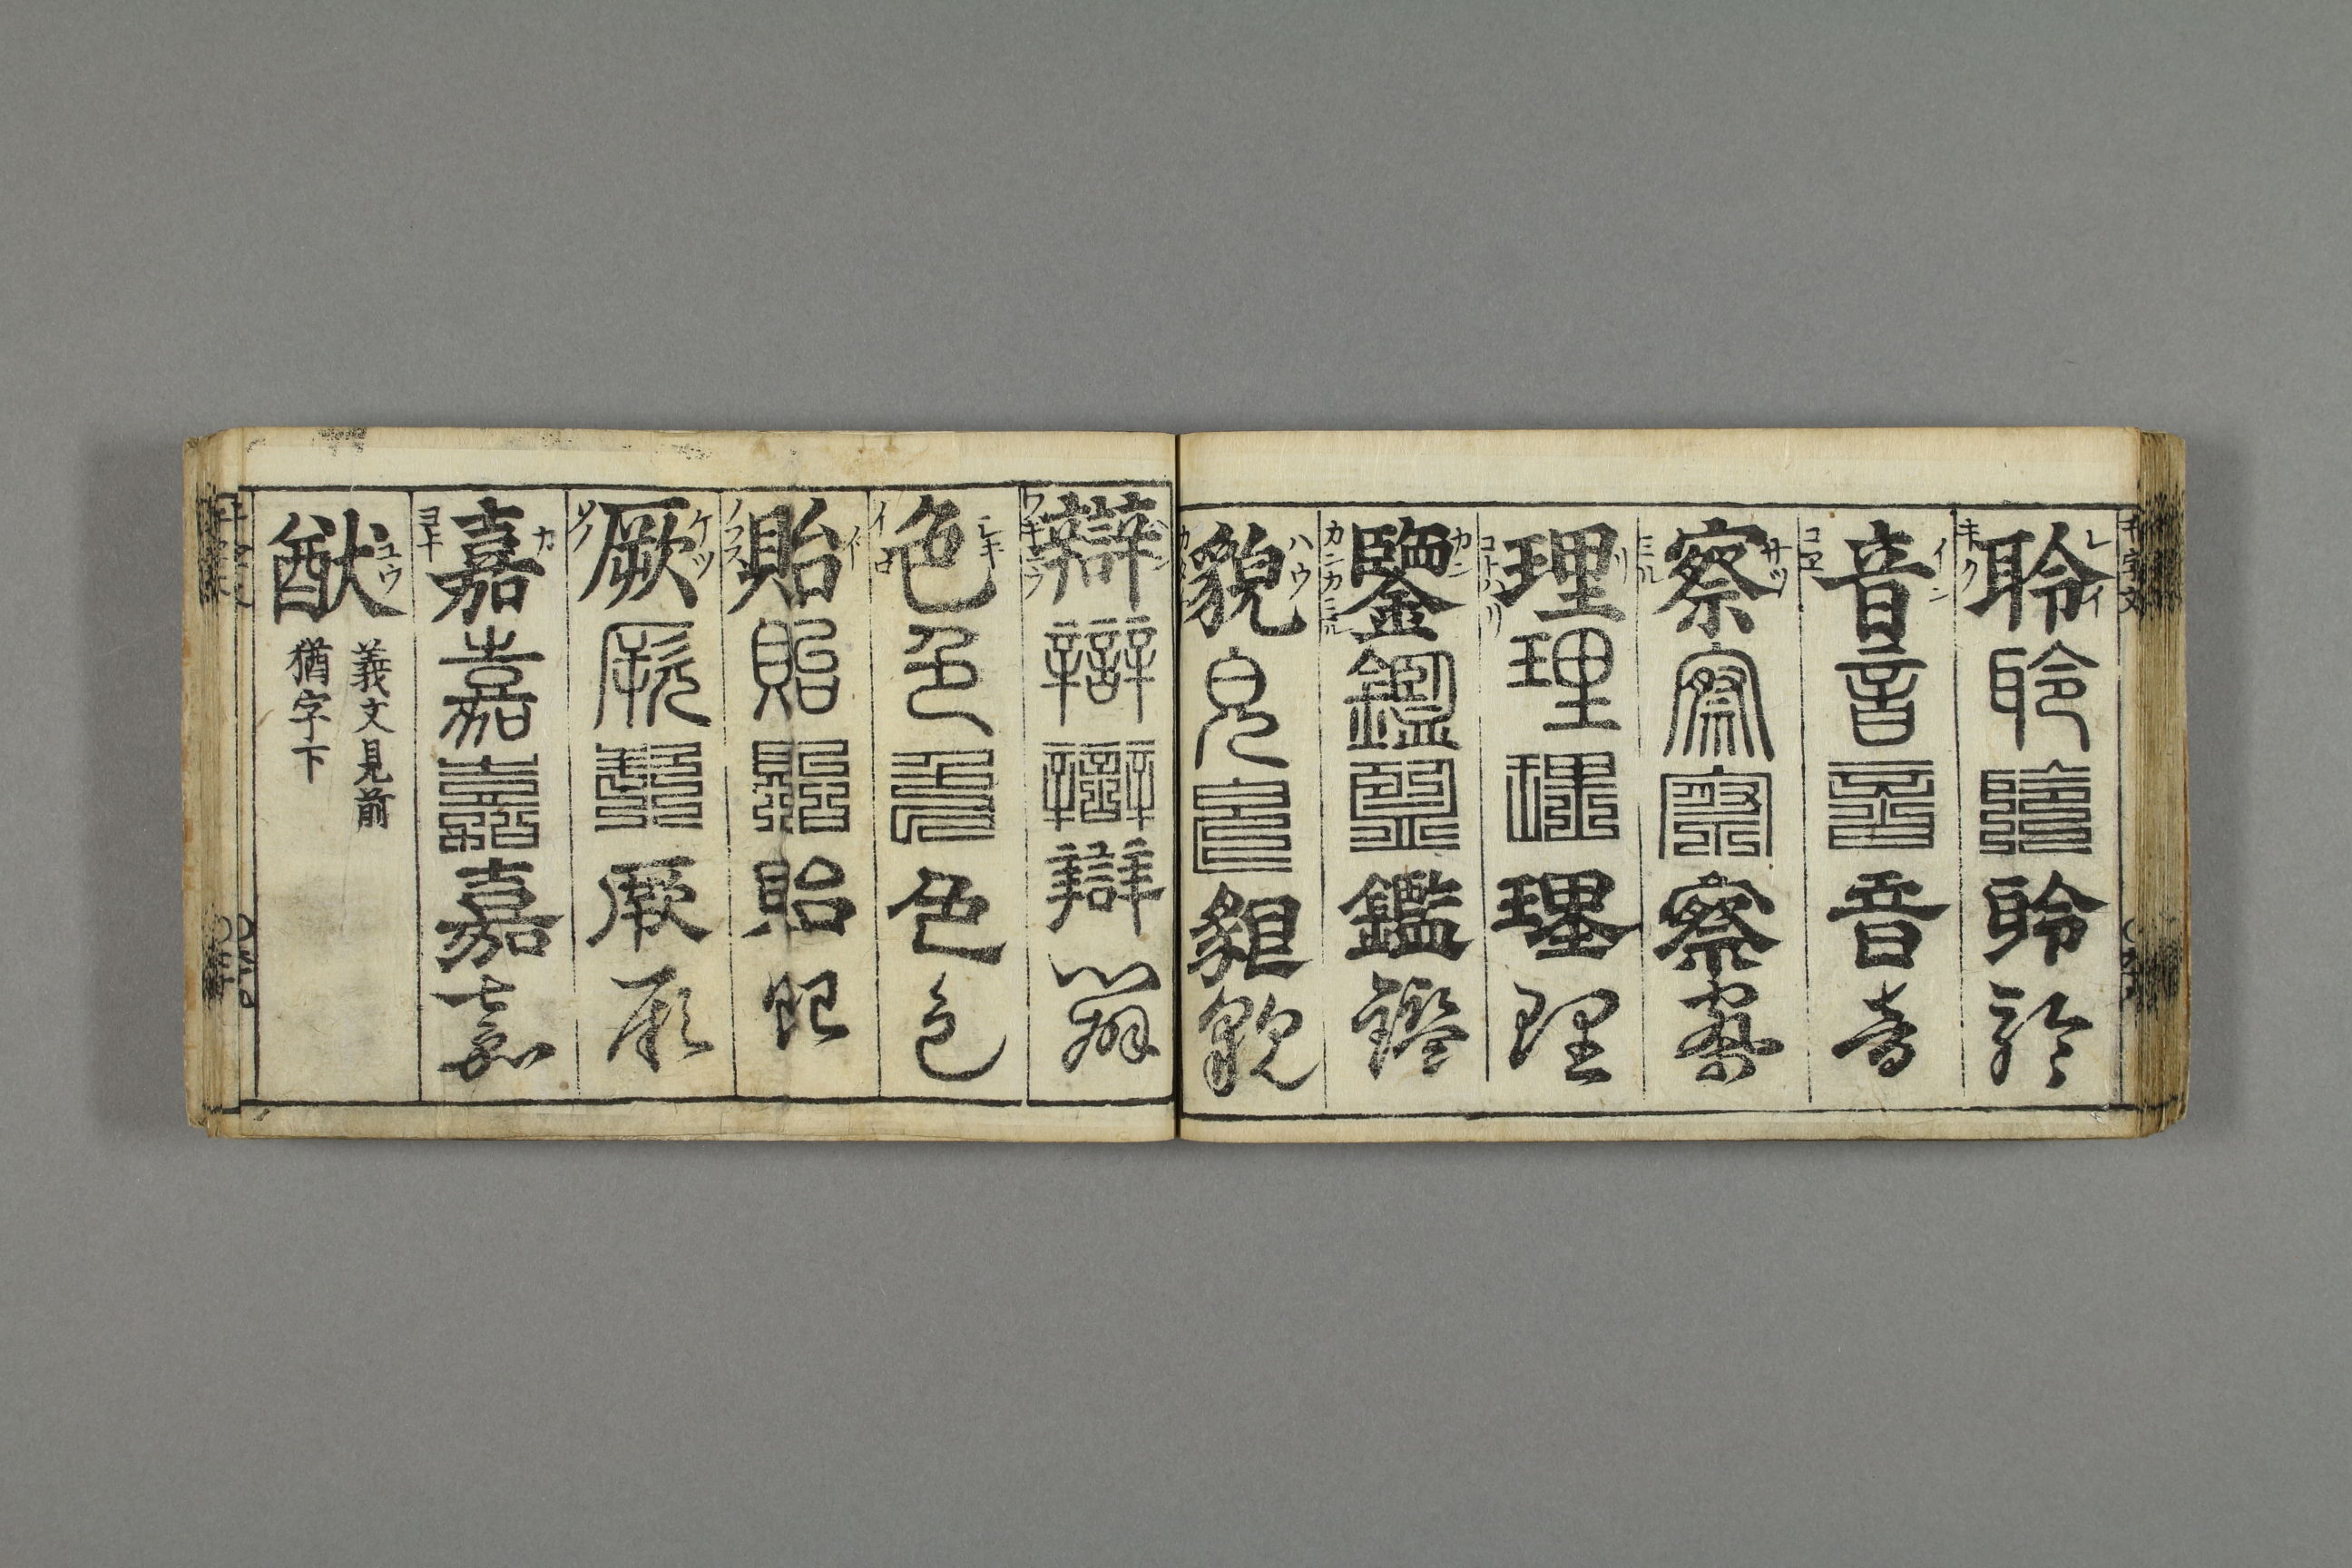 聆 レイ キク 聆 聆 聆 聆
音 イン コヱ 音 音 音 音
察 サツ ミル 察 察 察 察
理 リ コトハリ 理 理 理 理
鑒 カン カンカミル 鑑 鑑 鑑 鑑
貌 ハウ 皃 皃 貌 貌
辯 辯 辯 辯 辯
色 シキ イロ 色 色 色 色
貽 イ ノコス 貽 貽 貽 貽
厥 ケツ ソノ 厥 厥 厥 厥
嘉 カ ヨキ 嘉 嘉 嘉 嘉
猷 ユウ
義文見前
猶字下